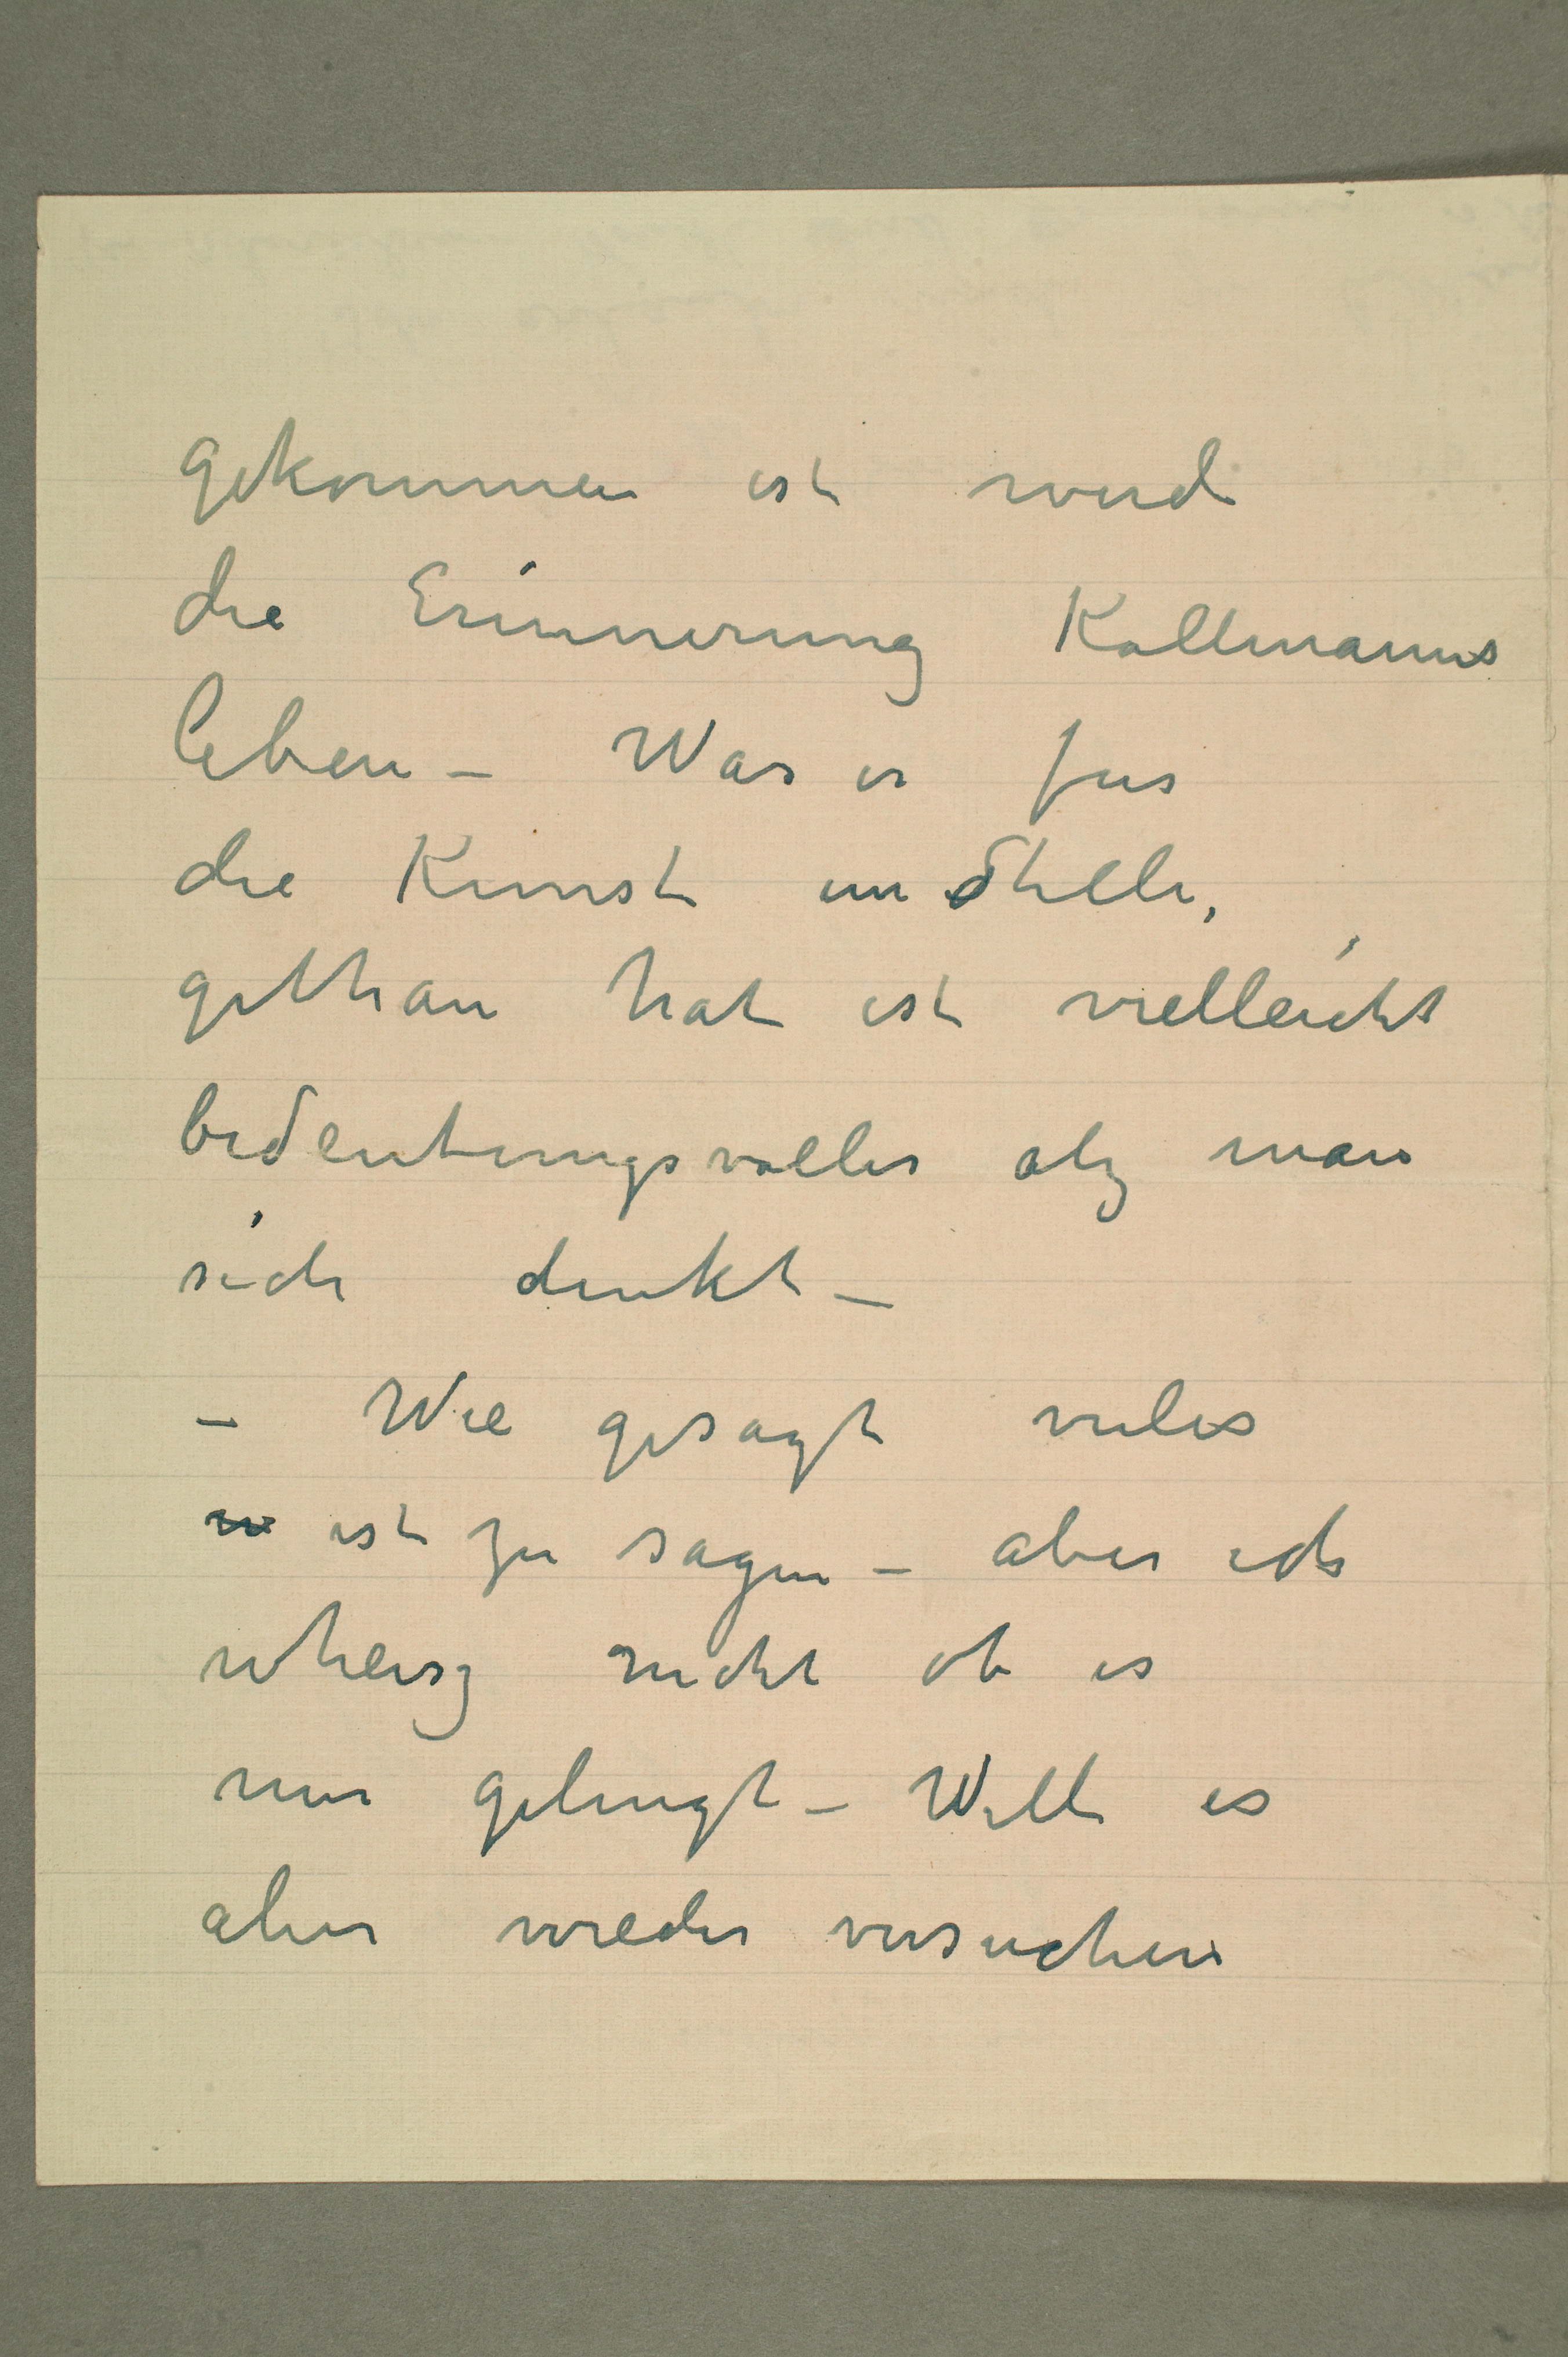 gekommen ist werd
die Erinnerung Kollmanns
leben – Was er fur
die Kunst im Stille,
gethan hat ist vielleicht
bedeutungsvoller alz man
sich denkt –
– Wie gesagt vieles
ist zu sagen – aber ich
wheisz nicht ob es
mir gelingt – Will es
aber wieder versuchen